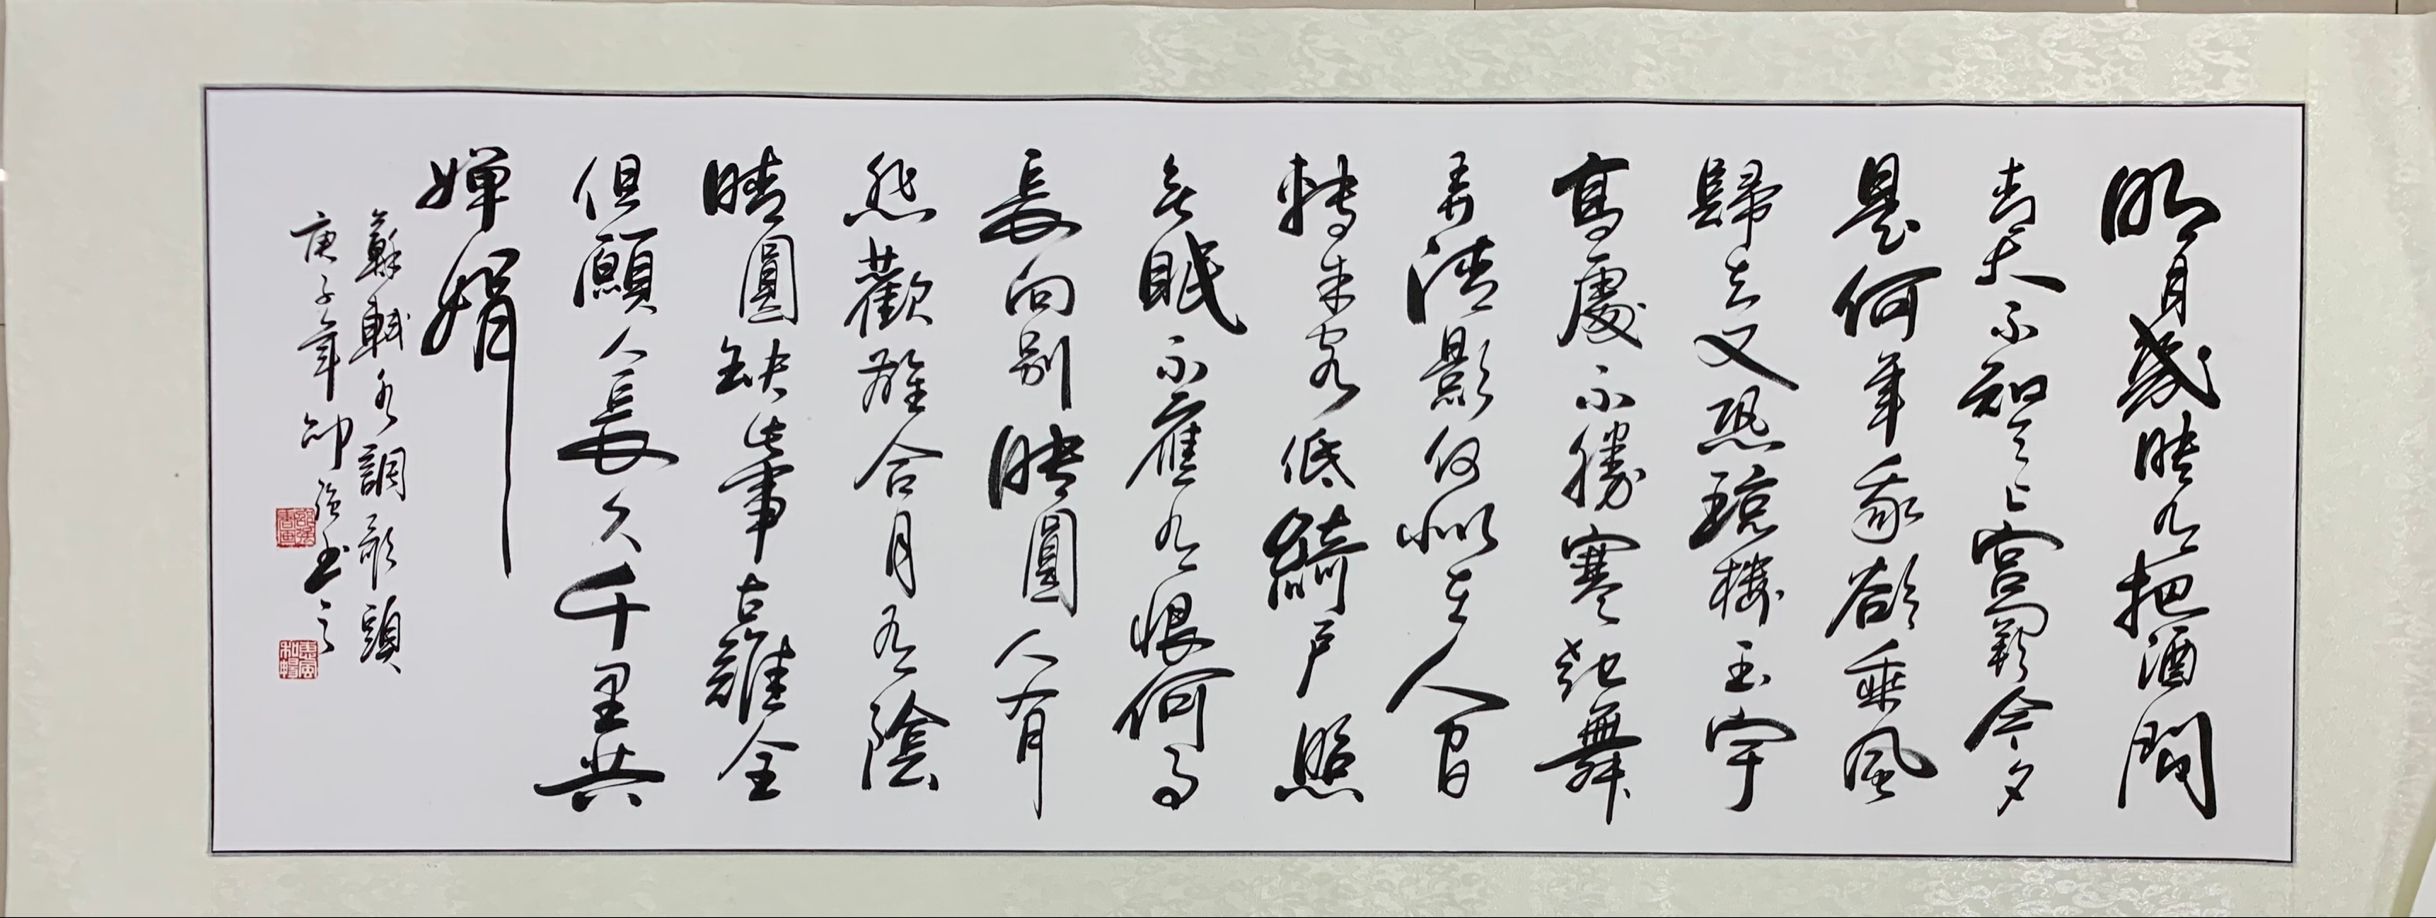 明月幾時有把酒問
青天不知天上宫闕今夕
是何年我欲乘風
歸去又恐瓊樓玉宇
高處不勝寒起舞
弄清影何似在人間
轉朱閣低綺户照
無眠不應有恨何事
長向别時圓人有
悲歡離合月有陰
晴圓缺此事古難全
但願人長久千里共
嬋娟
蘇軾水調歌頭
庚子年邵强書之
惠風和暢